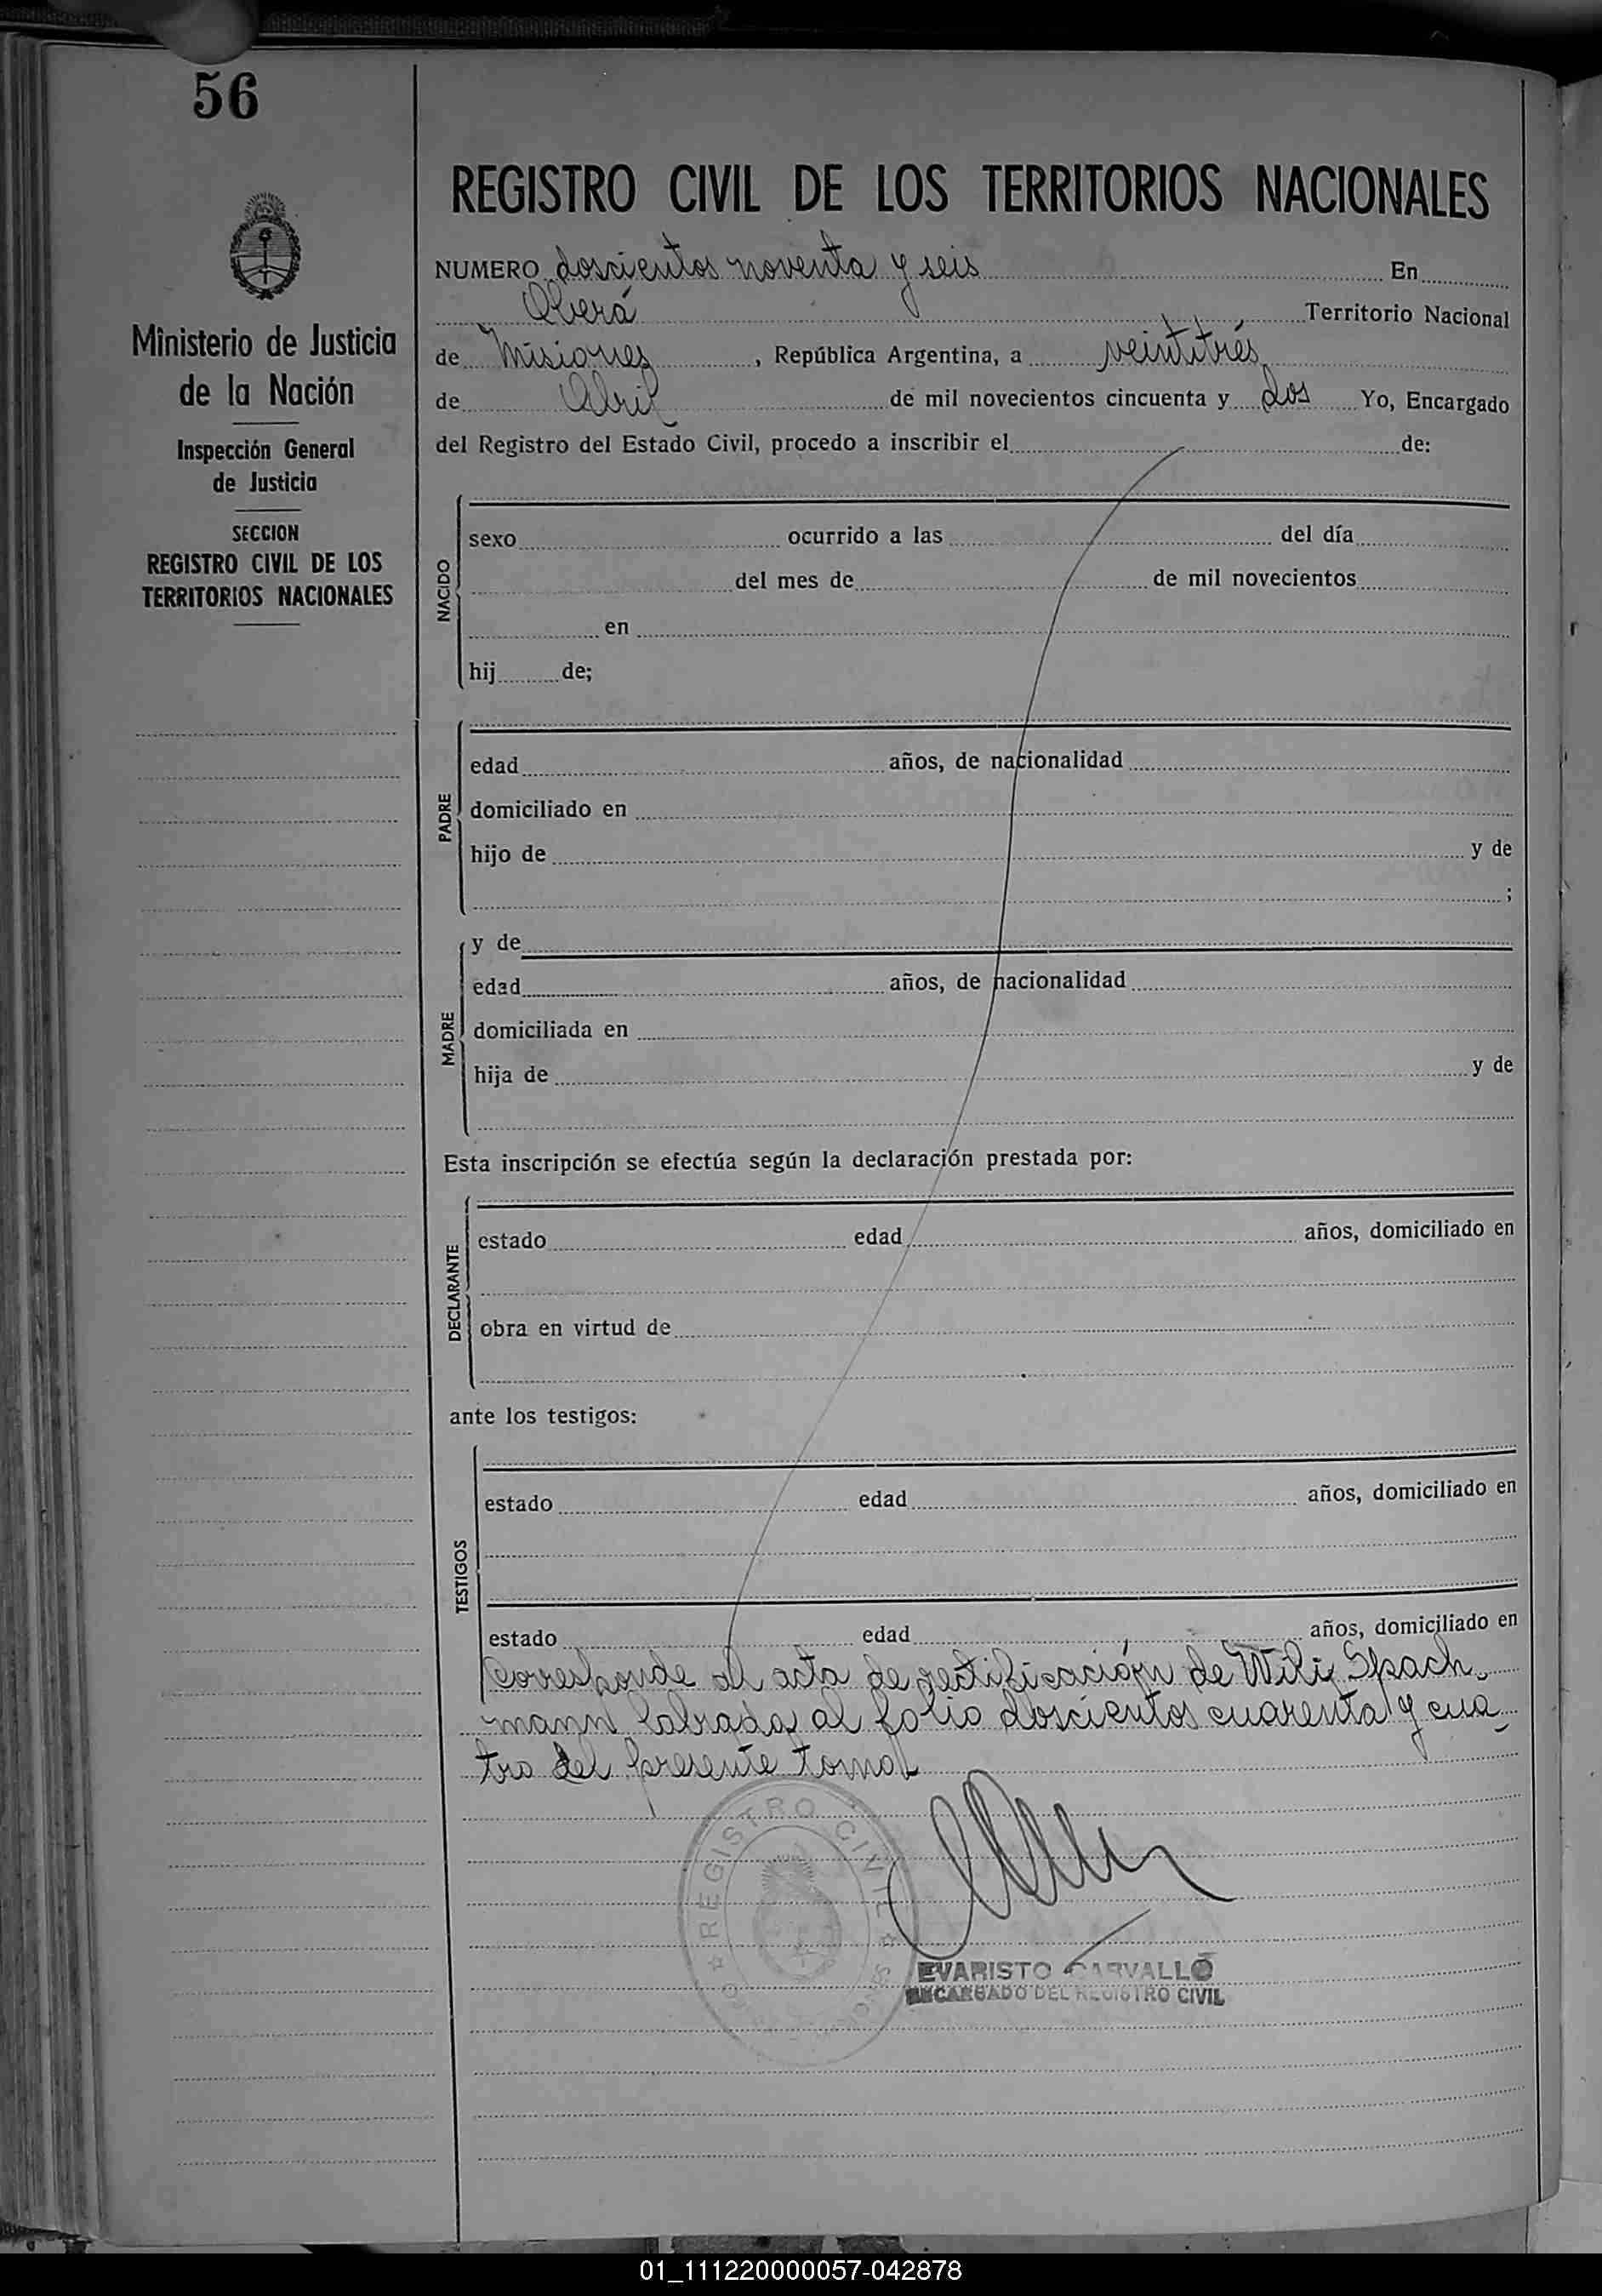 56
REGISTRO CIVIL DE LOS TERRITORIOS NACIONALES
Ministerio de Justicia
de la Nación
Inspección General
de Justicia
SECCION
REGISTRO CIVIL DE LOS
TERRITORIOS NACIONALES
NUMERO doscientos noventa y seis En
Oberá Territorio Nacional
de Misiones, República Argentina, a veintitrés
de Abril de mil novecientos cincuenta y dos Yo, Encargado
del Registro del Estado Civil, procedo a inscribir el de:
NACIDO
sexo ocurrido a las del día
del mes de de mil novecientos
en
hij de;
PADRE
edad años, de nacionalidad
domiciliado en
hijo de y de
;
MADRE
y de
edad años, de nacionalidad
domiciliada en
hija de y de
Esta inscripción se efectúa según la declaración prestada por:
DECLARANTE
estado edad años, domiciliado en
obra en virtud de
ante los testigos:
TESTIGOS
estado edad años, domiciliado en
estado edad años, domiciliado en
Corresponde al acta de rectificación de Wili Spach-
mann labrada al folio doscientos cuarenta y cua-
tro del presente tomo
REGISTRO CIVIL
EVARISTO CARVALLO
ENCARGADO DEL REGISTRO CIVIL
01_111220000057-042878